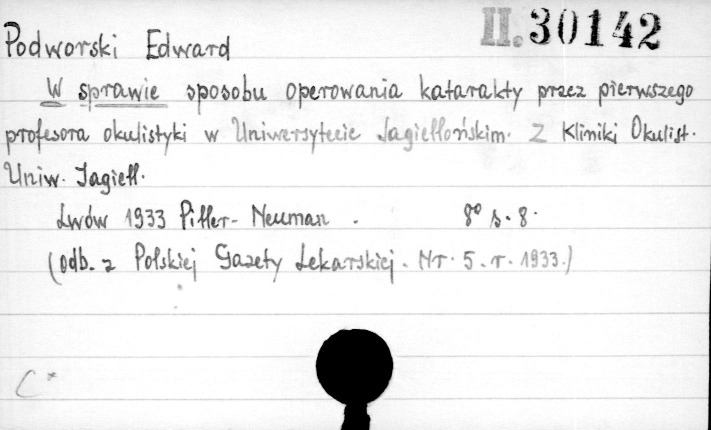 II. 30142
Podworski Edward
W sprawie sposobu operowania katarakty przez pierwszego
profesora okulistyki w Uniwersytecie Jagiellońskim. Z Kliniki Okulist.
Uniw. Jagiell.
Lwów 1933 Piller-Neuman. 8° s. 8.
(odb. z Polskiej Gazety Lekarskiej. Nr. 5. r. 1933.)
C*